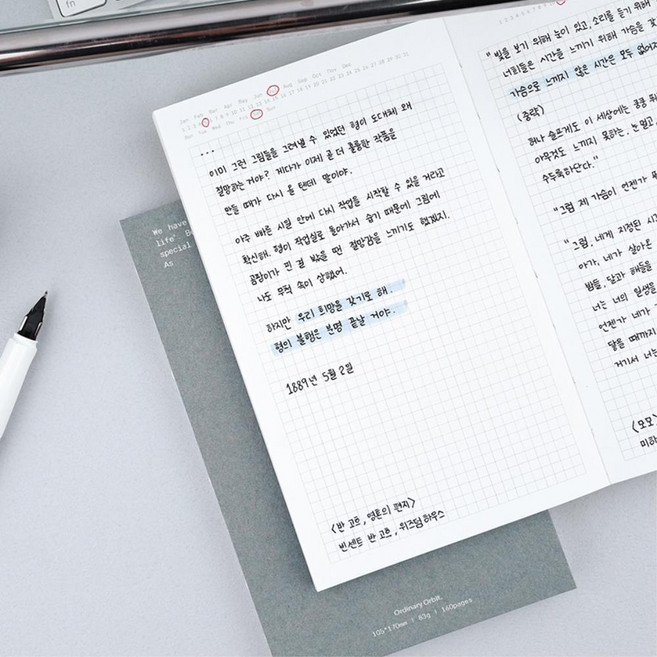 fn
Jan Feb Mar Apr May Jun Jul Aug Sep Oct Nov Dec
...
이미 그런 그림들을 그려낼 수 있었던 형이 도대체 왜
절망하는거야? 게다가 이제 곧 더 훌륭한 작품을
만들 때가 다시 올 텐데 말이야.
아주 빠른 시일 안에 다시 작업을 시작할 수 있을 거라고
확신해. 형이 작업실로 돌아가서 습기 때문에 그림에
곰팡이가 핀 걸 봤을 땐 절망감을 느끼기도 했겠지.
나도 무척 속이 상했어.
하지만 우리 희망을 갖기로 해.
형의 불행은 분명 끝날 거야.
1889년 5월 2일
<반 고흐, 영혼의 편지>
빈센트 반 고흐, 위즈덤하우스
"빛을 보기 위해 눈이 있고, 소리를 듣기 위해
너희들은 시간을 느끼기 위해 가슴을
가슴으로 느끼지 않은 시간은 모두 없어
(중략)
허나 슬프게도 이 세상에는 쿵쿵
아무것도 느끼지 못하는, 눈 멀고,
수두룩하단다."
"그럼 제 가슴이 언젠가
"그럼, 네게 지정된
아가, 네가 살아온
밤들, 달과 해들을
너는 너의 일생을
언젠가 네가
닿을 때까지
거기서 너는
<모모>
We have
life"
special
As
Ordinary Orbit.
105*170mm | 83g | 160pages